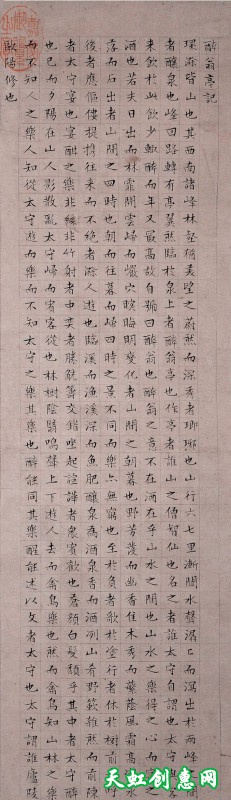 醉翁亭記
環滁皆山也其西南諸峰林壑尤美望之蔚然而深秀者瑯琊也山行六七里漸聞水聲潺潺而瀉出於兩峰間
者釀泉也峰回路轉有亭翼然臨於泉上者醉翁亭也作亭者誰山之僧智仙也名之者誰太守自謂也太守與客
來飲於此飲少輒醉而年又最高故自號曰醉翁也醉翁之意不在酒在乎山水之間也山水之樂得之心而寓之
酒也若夫日出而林霏開雲歸而巖穴暝晦明變化者山間之朝暮也野芳發而幽香佳木秀而繁陰風霜高潔水
落而石出者山間之四時也朝而往暮而歸四時之景不同而樂亦無窮也至於負者歌於塗行者休於樹前者呼
後者應傴僂提攜往來而不絕者滁人遊也臨溪而漁溪深而魚肥釀泉為酒泉香而酒冽山肴野蔌雜然而前陳
者太守宴也宴酣之樂非絲非竹射者中弈者勝觥籌交錯坐起諠譁者眾賓歡也蒼顏白髮頹乎其中者太守醉
也已而夕陽在山人影散亂太守歸而賓客從也林樹陰翳鳴聲上下遊人去而禽鳥樂也然而禽鳥知山林之樂
而不知人之樂人知從太守遊而樂而不知太守之樂其樂也醉能同其樂醒能述以文者太守也太守謂誰廬陵
歐陽修也
天虹创意网